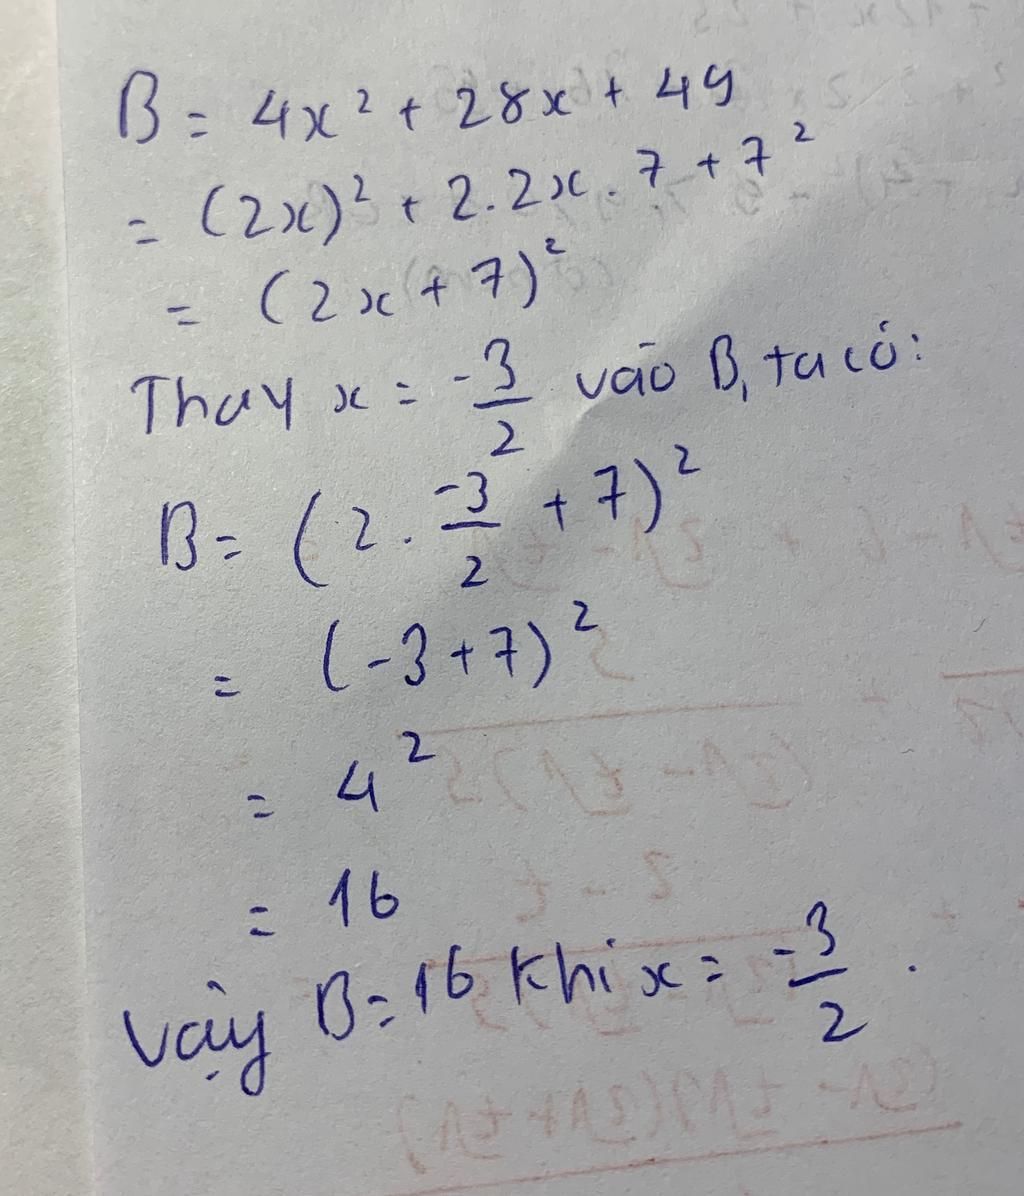 B = 4x² + 28x + 49
= (2x)² + 2.2x.7 + 7²
= (2x + 7)²
Thay x = -3/2 vào B, ta có:
B = (2 . -3/2 + 7)²
= (-3 + 7)²
= 4²
= 16
Vậy B = 16 khi x = -3/2 .